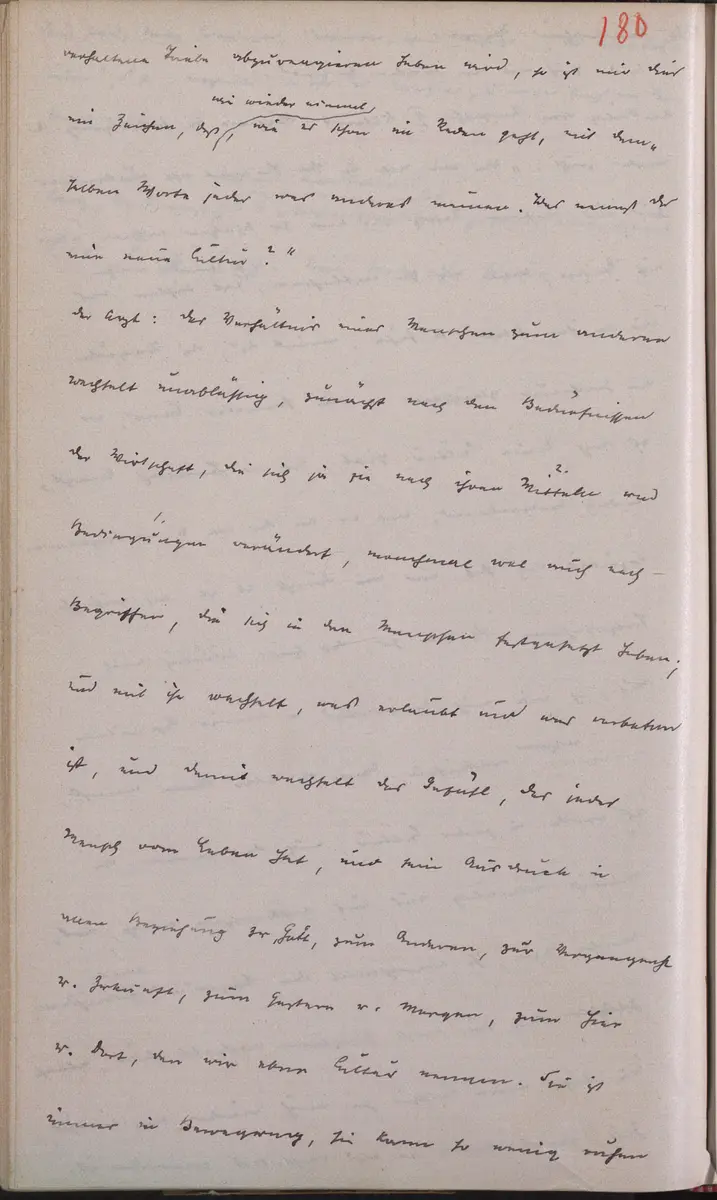 180
verhaltene Triebe abzureagieren haben wird, so ist mir dies
wie wieder einmal,
ein Zeichen, daß, wie es schon im Reden geht, mit dem-
selben Worte jeder was anderes meinen. Was nennst du
eine neue Cultur?"
der Arzt: das Verhältnis eines Menschen zum anderen
wechselt unablässig, zunächst nach den Bedürfnissen
der Wirtschaft, die sich ja je nach ihren Mitteln und
Bedingungen verändert, manchmal wol auch nach
Begriffen, die sich in den Menschen festgesetzt haben;
und mit ihr wechselt, was erlaubt und was verboten
ist, und damit wechselt das Gefühl, das jeder
Mensch vom Leben hat, und sein Ausdruck in
allen Beziehung zu Gott, zum Anderen, zur Vergangenheit
u. Zukunft, zum Gestern u. Morgen, zum Hier
u. Dort, den wir eben Cultur nennen. Sie ist
immer in Bewegung, sie kann so wenig ruhen